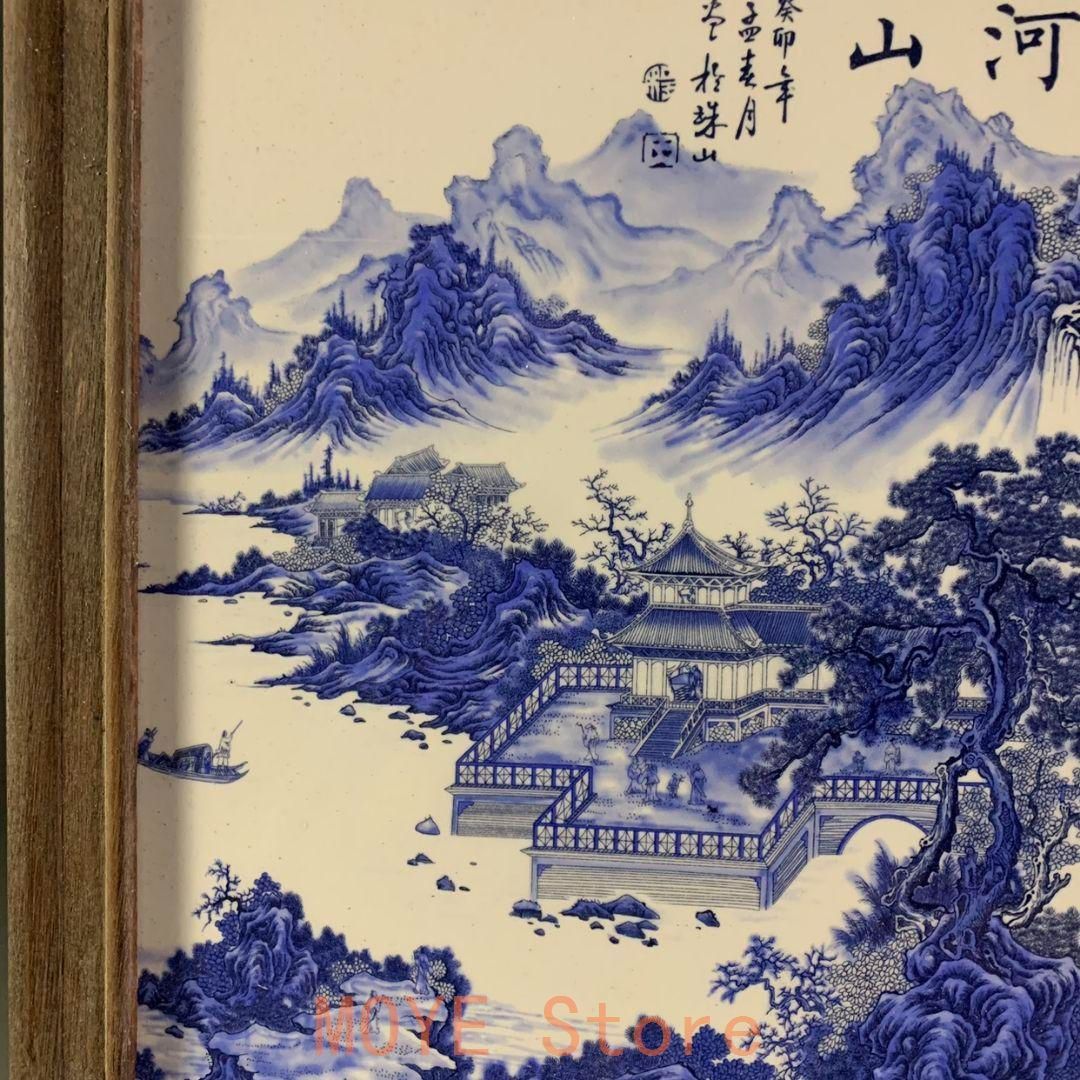 河山
癸卯年
孟春月
於珠山
MOYE Store